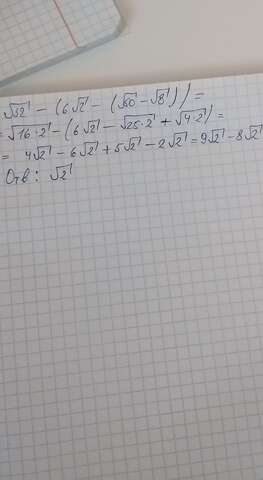 √32 - (6√2 - (√50 - √8)) =
= √16·2 - (6√2 - √25·2 + √4·2) =
= 4√2 - 6√2 + 5√2 - 2√2 = 9√2 - 8√2
Отв: √2